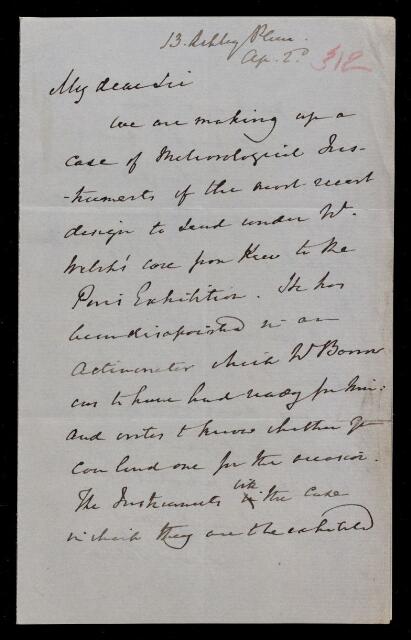 13. Ashley Place
Ap. 2d
312
My dear Sir
We are making up a
case of Meteorological Ins-
-truments of the most recent
design to send under Mr
Welsh's care from Kew to the
Paris Exhibition. He has
been disappointed in an
Actinometer which Mr Barrow
was to have had ready for him:
and writes to know whether you
can lend one for the occasion.
The Instruments with the case
in which they are to be exhibited